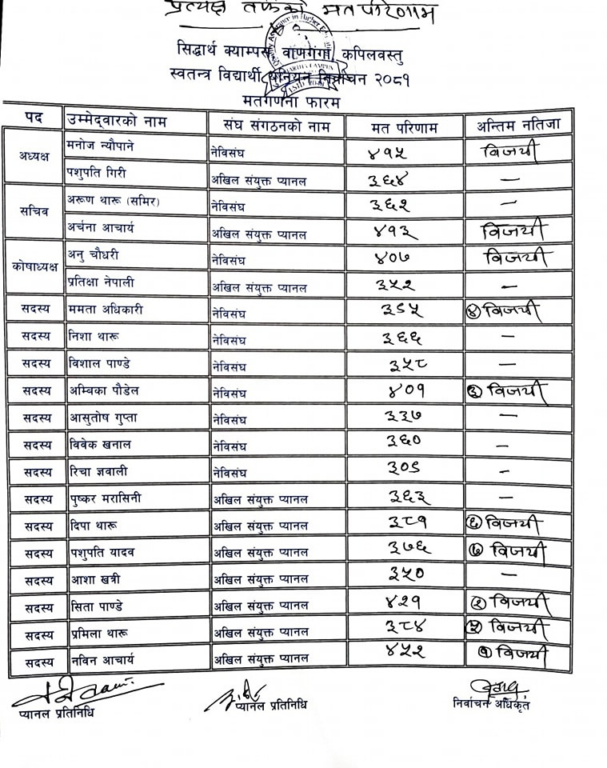 प्रत्यक्ष तर्फको मत परिणाम
सिद्धार्थ क्याम्पस, वाणगंगा, कपिलवस्तु
स्वतन्त्र विद्यार्थी युनियन निर्वाचन २०७९
मतगणना फारम
पद उम्मेद्वारको नाम संघ संगठनको नाम मत परिणाम अन्तिम नतिजा
अध्यक्ष मनोज न्यौपाने नेविसंघ ४१५ विजयी
पशुपति गिरी अखिल संयुक्त प्यानल ३६४ —
सचिव अरूण थारू (समिर) नेविसंघ ३६२ —
अर्चना आचार्य अखिल संयुक्त प्यानल ४१३ विजयी
कोषाध्यक्ष अनु चौधरी नेविसंघ ४०७ विजयी
प्रतिक्षा नेपाली अखिल संयुक्त प्यानल ३५२ —
सदस्य ममता अधिकारी नेविसंघ ३९५ ४ विजयी
सदस्य निशा थारू नेविसंघ ३६६ —
सदस्य विशाल पाण्डे नेविसंघ ३५८ —
सदस्य अम्विका पौडेल नेविसंघ ४०१ ३ विजयी
सदस्य आसुतोष गुप्ता नेविसंघ ३३७ —
सदस्य विवेक खनाल नेविसंघ ३६० —
सदस्य रिचा ज्ञवाली नेविसंघ ३०९ —
सदस्य पुष्कर मरासिनी अखिल संयुक्त प्यानल ३६३ —
सदस्य दिपा थारू अखिल संयुक्त प्यानल ३८१ ६ विजयी
सदस्य पशुपति यादव अखिल संयुक्त प्यानल ३७६ ७ विजयी
सदस्य आशा खत्री अखिल संयुक्त प्यानल ३५० —
सदस्य सिता पाण्डे अखिल संयुक्त प्यानल ४२१ २ विजयी
सदस्य प्रमिला थारू अखिल संयुक्त प्यानल ३८४ ५ विजयी
सदस्य नविन आचार्य अखिल संयुक्त प्यानल ४५२ १ विजयी
प्यानल प्रतिनिधि प्यानल प्रतिनिधि निर्वाचन अधिकृत